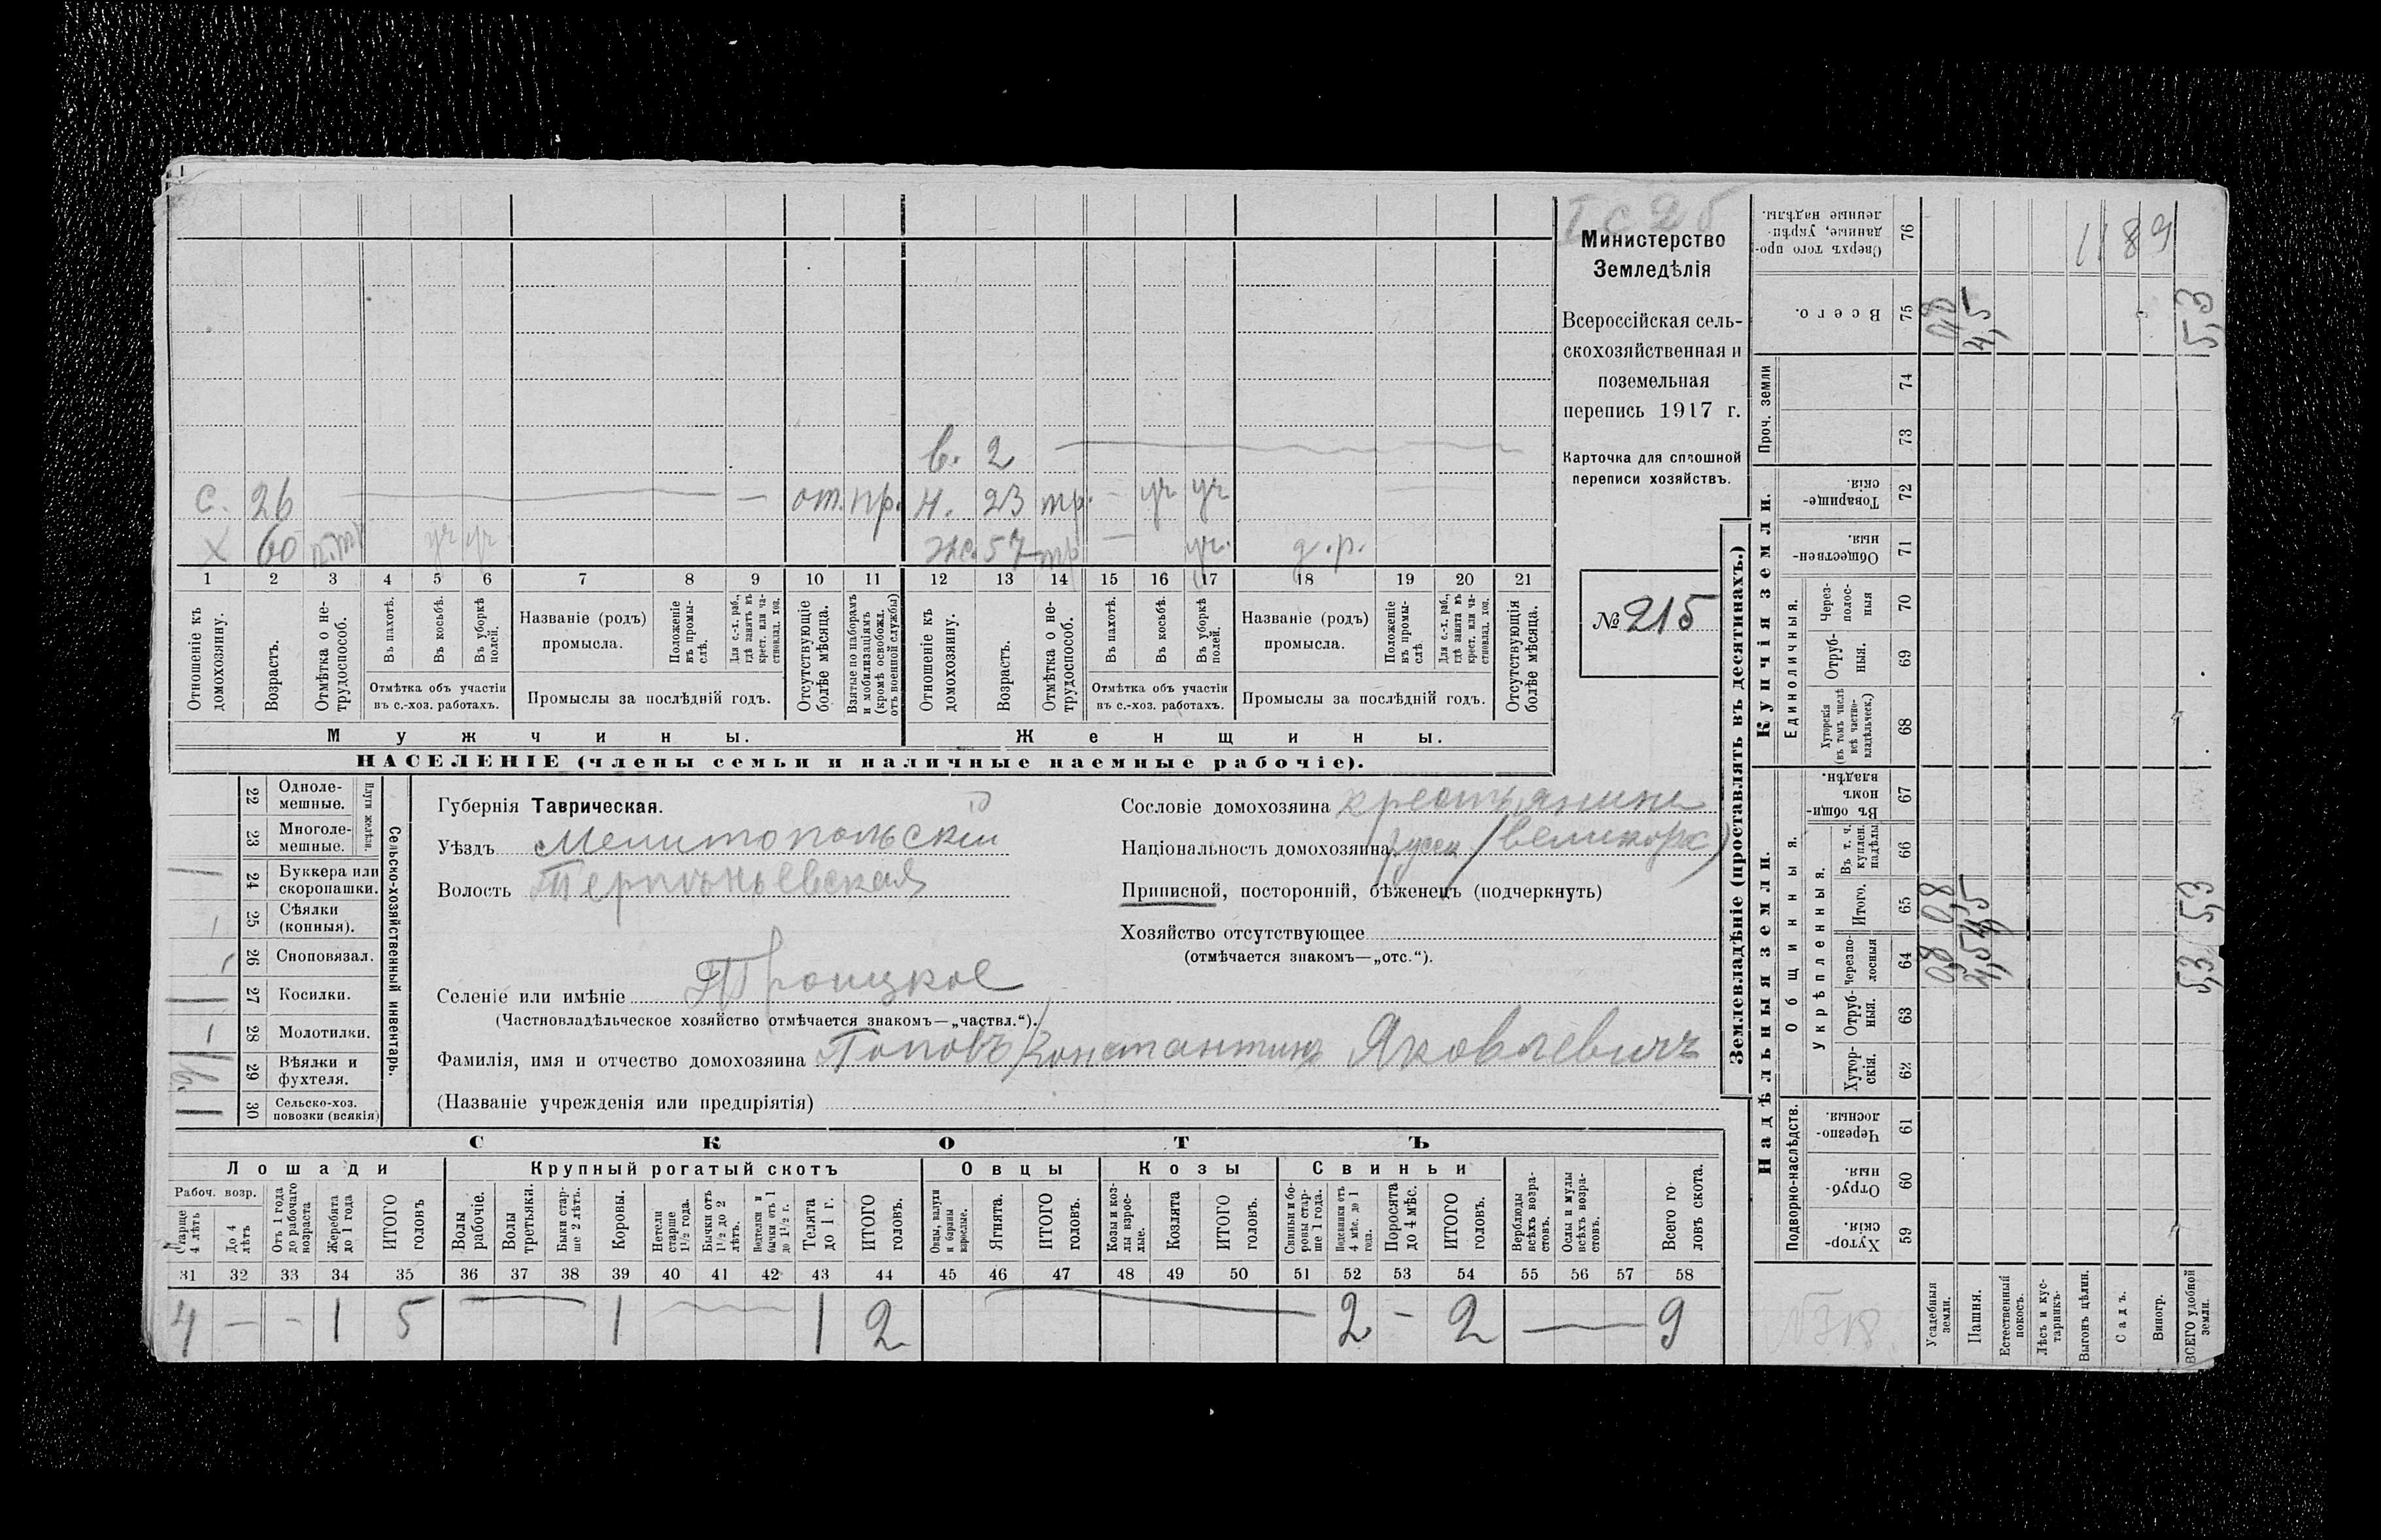 в. 2
с. 26 — от. пр. н. 23 тр. — уч уч
х 60 п.тр уч уч же. 57 тр — уч. д.р.
1 2 3 4 5 6 7 8 9 10 11 12 13 14 15 16 17 18 19 20 21
Отношеніе къ домохозяину.
Возрастъ.
Отмѣтка о не-трудоспособ.
Въ пахотѣ.
Въ косьбѣ.
Въ уборкѣ полей.
Отмѣтка объ участіи въ с.-хоз. работахъ.
Названіе (родъ) промысла.
Положеніе въ промыслѣ.
Для с.-х. раб., гдѣ занятъ въ крест. или частновлад. хоз.
Промыслы за послѣдній годъ.
Отсутствующіе болѣе мѣсяца.
Взятые по наборамъ и мобилизаціямъ (кромѣ освобожд. отъ военной службы)
Отношеніе къ домохозяину.
Возрастъ.
Отмѣтка о не-трудоспособ.
Въ пахотѣ.
Въ косьбѣ.
Въ уборкѣ полей.
Отмѣтка объ участіи въ с.-хоз. работахъ.
Названіе (родъ) промысла.
Положеніе въ промыслѣ
Для с.-х. раб., гдѣ занята въ крест. или частновлад. хоз.
Промыслы за послѣдній годъ.
Отсутствующія болѣе мѣсяца.
Мужчины.
Женщины.
НАСЕЛЕНІЕ (члены семьи и наличные наемные рабочіе).
Министерство
Земледѣлія
Всероссійская сель-
скохозяйственная и
поземельная
перепись 1917 г.
Карточка для сплошной
переписи хозяйствъ.
№ 215
Сельско-хозяйственный инвентарь.
Плуги желѣзн.
22 Одноле-мешные.
23 Многоле-мешные.
24 Буккера или скоропашки.
25 Сѣялки (конныя).
26 Сноповязал.
27 Косилки.
28 Молотилки.
29 Вѣялки и фухтеля.
30 Сельско-хоз. повозки (всякія)
Губернія Таврическая.
Уѣздъ Мелитопольскій
Волость Терпѣньевская
Селеніе или имѣніе Троицкое
(Частновладѣльческое хозяйство отмѣчается знакомъ—„частвл.“).
Фамилія, имя и отчество домохозяина Поповъ Константинъ Яковлевичъ
(Названіе учрежденія или предпріятія)
Сословіе домохозяина крестьянинъ
Національность домохозяина русск (великорс)
Приписной, посторонній, бѣженецъ (подчеркнуть)
Хозяйство отсутствующее
(отмѣчается знакомъ—„отс.“).
СКОТЪ
Лошади
Рабоч. возр.
Старше 4 лѣтъ
До 4 лѣтъ
Отъ 1 года до рабочаго возраста
Жеребята до 1 года
ИТОГО головъ
Крупный рогатый скотъ
Волы рабочіе.
Волы третьяки.
Быки старше 2 лѣтъ.
Коровы.
Нетели старше 1½ года.
Бычки отъ 1½ до 2 лѣтъ.
Подтелки и бычки отъ 1 до 1½ г.
Телята до 1 г.
ИТОГО головъ.
Овцы
Овцы, валухи и бараны взрослые.
Ягнята.
ИТОГО головъ.
Козы
Козы и козлы взрослые.
Козлята
ИТОГО головъ.
Свиньи
Свиньи и боровы старше 1 года.
Подсвинки отъ 4 мѣс. до 1 года.
Поросята до 4 мѣс.
ИТОГО головъ.
Верблюды всѣхъ возрастовъ.
Ослы и мулы всѣхъ возрастовъ.
Всего головъ скота.
31 32 33 34 35 36 37 38 39 40 41 42 43 44 45 46 47 48 49 50 51 52 53 54 55 56 57 58
4 — - 1 5 — 1 — 1 2 — 2 - 2 — 9
Землевладѣніе (проставлять въ десятинахъ.)
Надѣльныя земли.
Подворно-наслѣдств.
Хуторскія. 59
Отрубныя. 60
Черезполосныя. 61
Общинныя.
Укрѣпленныя.
Хуторскія. 62
Отрубныя. 63
Черезполосныя 64
Итого. 65
Въ т. ч. куплен. надѣлы 66
Въ общинномъ владѣн. 67
Купчія земли.
Единоличныя.
Хуторскія (въ томъ числѣ всѣ частновладѣльческ.) 68
Отрубныя. 69
Черезполосныя 70
Общественныя. 71
Товарищескія. 72
Проч. земли
73
74
Всего. 75
Сверхъ того проданные, укрѣпленные надѣлы. 76
Усадебныя земли. 08 08 08
Пашня. 4,5 4,5 4,5
Естественный покосъ.
Лѣсъ и кустарникъ.
Выгонъ цѣлин.
Садъ.
Виногр.
ВСЕГО удобной земли. 5,3 5,3 5,3
1189